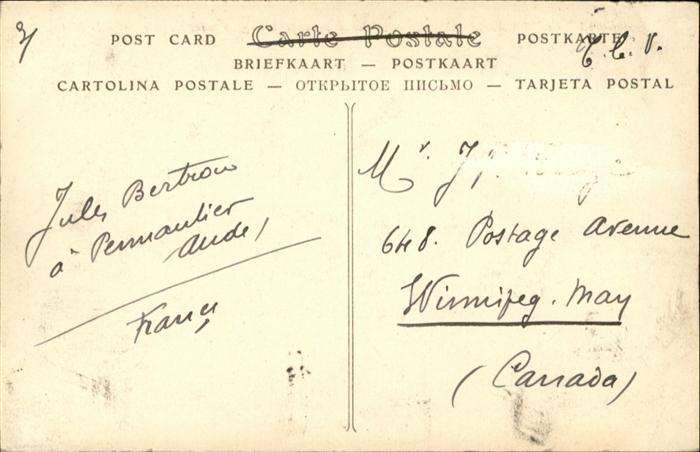 3/
POST CARD Carte Postale POSTKARTE
T. C. V.
BRIEFKAART — POSTKAART
CARTOLINA POSTALE — ОТКРЫТОЕ ПИСЬМО — TARJETA POSTAL
Jules Bertrou
à Pennautier
Aude
France
Mr J
648. Postage Avenue
Winnipeg. May
(Canada)